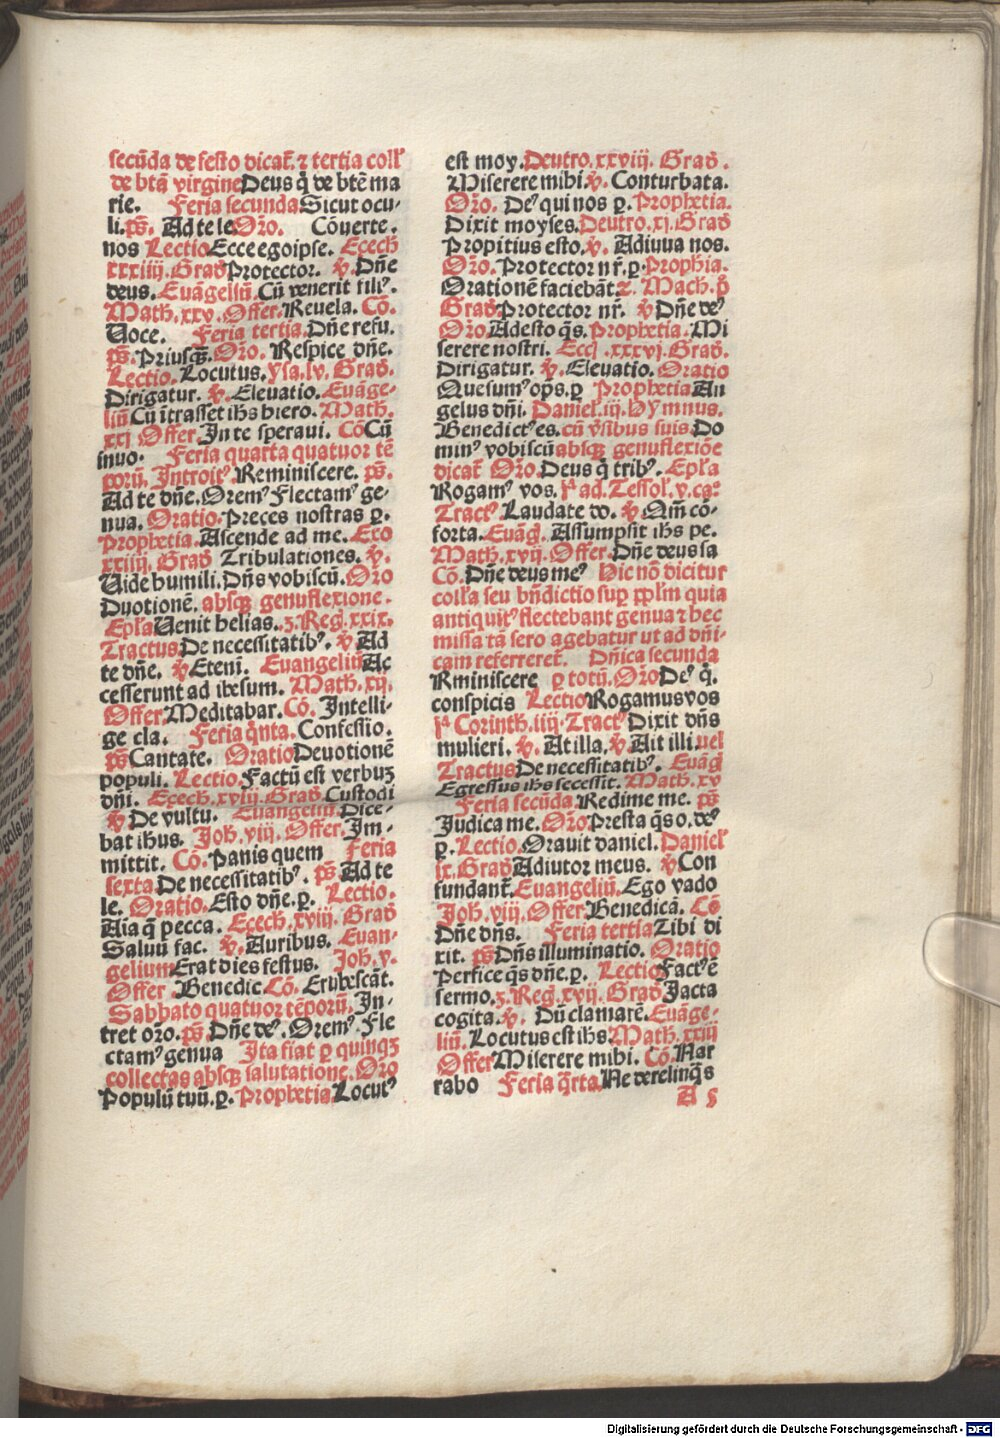 secūda de festo dicat̄. ⁊ tertia coll'
de btā virgine Deus q̄ de btē ma
rie. Feria secunda Sicut ocu-
li. ps̄. Ad te le Oro. Cōuerte.
nos Lectio Ecce ego ipse. Ezech
xxxiiij. Grad Protector. ℣. Dn̄e
deus. Euāgeliū. Cū venerit fili⁹.
Math. xxv. Offer. Reuela. Cō.
Uoce. Feria tertia. Dn̄e refu.
ps̄. Priusq̄ꝫ. Oro. Respice dn̄e.
Lectio. Locutus. ysa. lv. Grad.
Dirigatur. ℣. Eleuatio. Euāge-
liū Cū ītrasset ih̄s hiero. Math.
xxi Offer. In te speraui. Cō Cū
inuo. Feria quarta quatuor tē
porū. Introit⁹ Reminiscere. ps̄.
Ad te dn̄e. Orem⁹ Flectam⁹ ge-
nua. Oratio. Preces nostras ꝑ.
Prophetia. Ascende ad me. Exo
xxiiij. Grad Tribulationes. ℣.
Uide humili. Dn̄s vobiscū. Oro
Duotionē. absqꝫ genuflexione.
Ep̄la Uenit helias. 3. Reg. xxix.
Tractus De necessitatib⁹. ℣ Ad
te dn̄e. ℣ Etenī. Euangeliū Ac
cesserunt ad ihesum. Math. xij.
Offer Meditabar. Cō. Intelli-
ge cla. Feria q̄nta. Confessio.
ps̄ Cantate. Oratio Deuotionē
populi. Lectio. Factū est verbuꝫ
dn̄i. Ezech. xviij. Grad. Custodi
℣ De vultu. Euangeliū. Dice-
bat ihus. Joh. viij. Offer. Im-
mittit. Cō. Panis quem Feria
sexta De necessitatib⁹. ps̄ Ad te
le. Oratio. Esto dn̄e. ꝑ. Lectio.
Aīa q̄ pecca. Ezech. xviij. Grad
Saluū fac. ℣. Auribus. Euan-
gelium Erat dies festus. Joh. v.
Offer Benedic Cō. Erubescāt.
Sabbato quatuor tēporū. In-
tret oro. ps̄. Dn̄e de⁹. Orem⁹ Fle
ctam⁹ genua Ita fiat ꝑ quinqꝫ
collectas absqꝫ salutatione. Oro
Populū tuū. ꝑ. Prophetia Locut⁹
est moy. Deutro. xxviij. Grad.
Miserere mihi. ℣. Conturbata.
Oro. De⁹ qui nos ꝑ. Prophetia.
Dixit moyses. Deutro. xj. Grad
Propitius esto. ℣. Adiuua nos.
Oro. Protector nr̄. ꝑ. Prophīa.
Orationē faciebāt ⁊. Mach. p̄
Grad Protector nr̄. ℣ Dn̄e de⁹
Oro. Adesto q̄s. Prophetia. Mi
serere nostri. Eccī. xxxvj. Grad.
Dirigatur. ℣. Eleuatio. Oratio
Quesum⁹ op̄s. ꝑ Prophetia An
gelus dn̄i. Daniel. iij. Hymnus.
Benedict⁹ es. cū v̄sibus suis. Do
min⁹ vobiscū absqꝫ genuflexiōe
dicat̄ Oro. Deus q̄ trib⁹. Ep̄la
Rogam⁹ vos. j⁹ ad. Tessoł. v. ca°
Tract⁹ Laudate do. ℣ Qm̄ cō-
forta. Euāg̃. Assumpsit ih̄s pe.
Math. xvij. Offer. Dn̄e deus sa
Cō. Dn̄e deus me⁹ Hic nō dicitur
coll̄a seu bn̄dictio suꝑ pp̄lm quia
antiquit⁹ flectebant genua ⁊ hec
missa tā sero agebatur ut ad dn̄i-
cam referreret̄. Dn̄ica secunda
Rminiscere ꝑ totū. Oro De⁹ q̄.
conspicis Lectio Rogamus vos
j⁹ Corinth. iiij. Tract⁹ Dixit dn̄s
mulieri. ℣. At illa. ℣. Ait illi. uel
Tractus De necessitatib⁹. Euāg̃
Egressus ih̄s secessit. Math. xv
Feria secūda Redime me. ps̄
Judica me. Oro Presta q̄s o. de⁹
ꝑ. Lectio. Orauit daniel. Daniel'
ix. Grad Adiutor meus. ℣ Con
fundant̄. Euangeliū. Ego vado
Joh. viij. Offer. Benedicā. Cō
Dn̄e dn̄s. Feria tertia Tibi di
xit. ps̄ Dn̄s illuminatio. Oratio
Perfice q̄s dn̄e. ꝑ. Lectio Fact⁹ ē
sermo. 3. Reg. xvij. Grad Jacta
cogita. ℣. Dū clamarē. Euāge-
liū. Locutus est ih̄s Math. xxiij
Offer Miserere mihi. Cō. Nar
rabo Feria q̄rta. Ne derelinq̄s
A 5
Digitalisierung gefördert durch die Deutsche Forschungsgemeinschaft - DFG